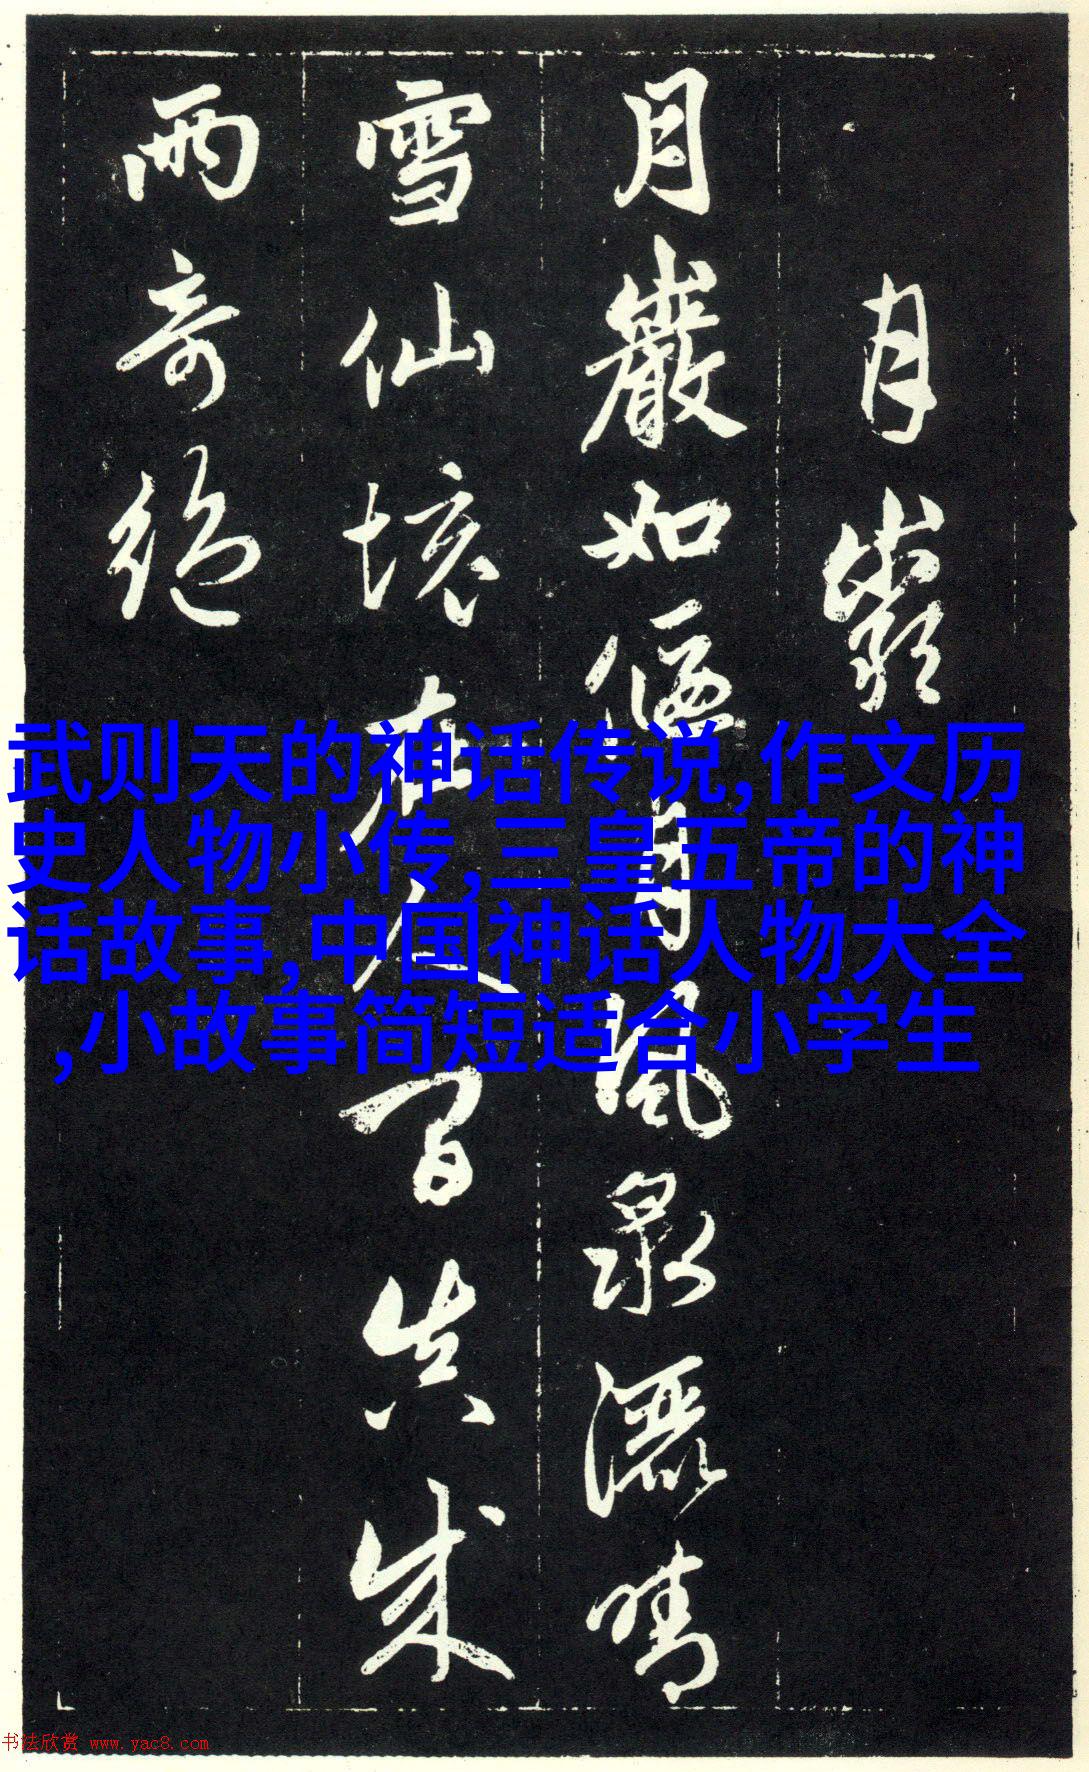 月巖
月巖如偃月風泉灑晴
雪仙境在人間真成
兩奇絕
武则天的神话传说,作文历
史人物小传,三皇五帝的神
话故事,中国神话人物大全
,小故事简短适合小学生
书法欣赏 www.yac8.com